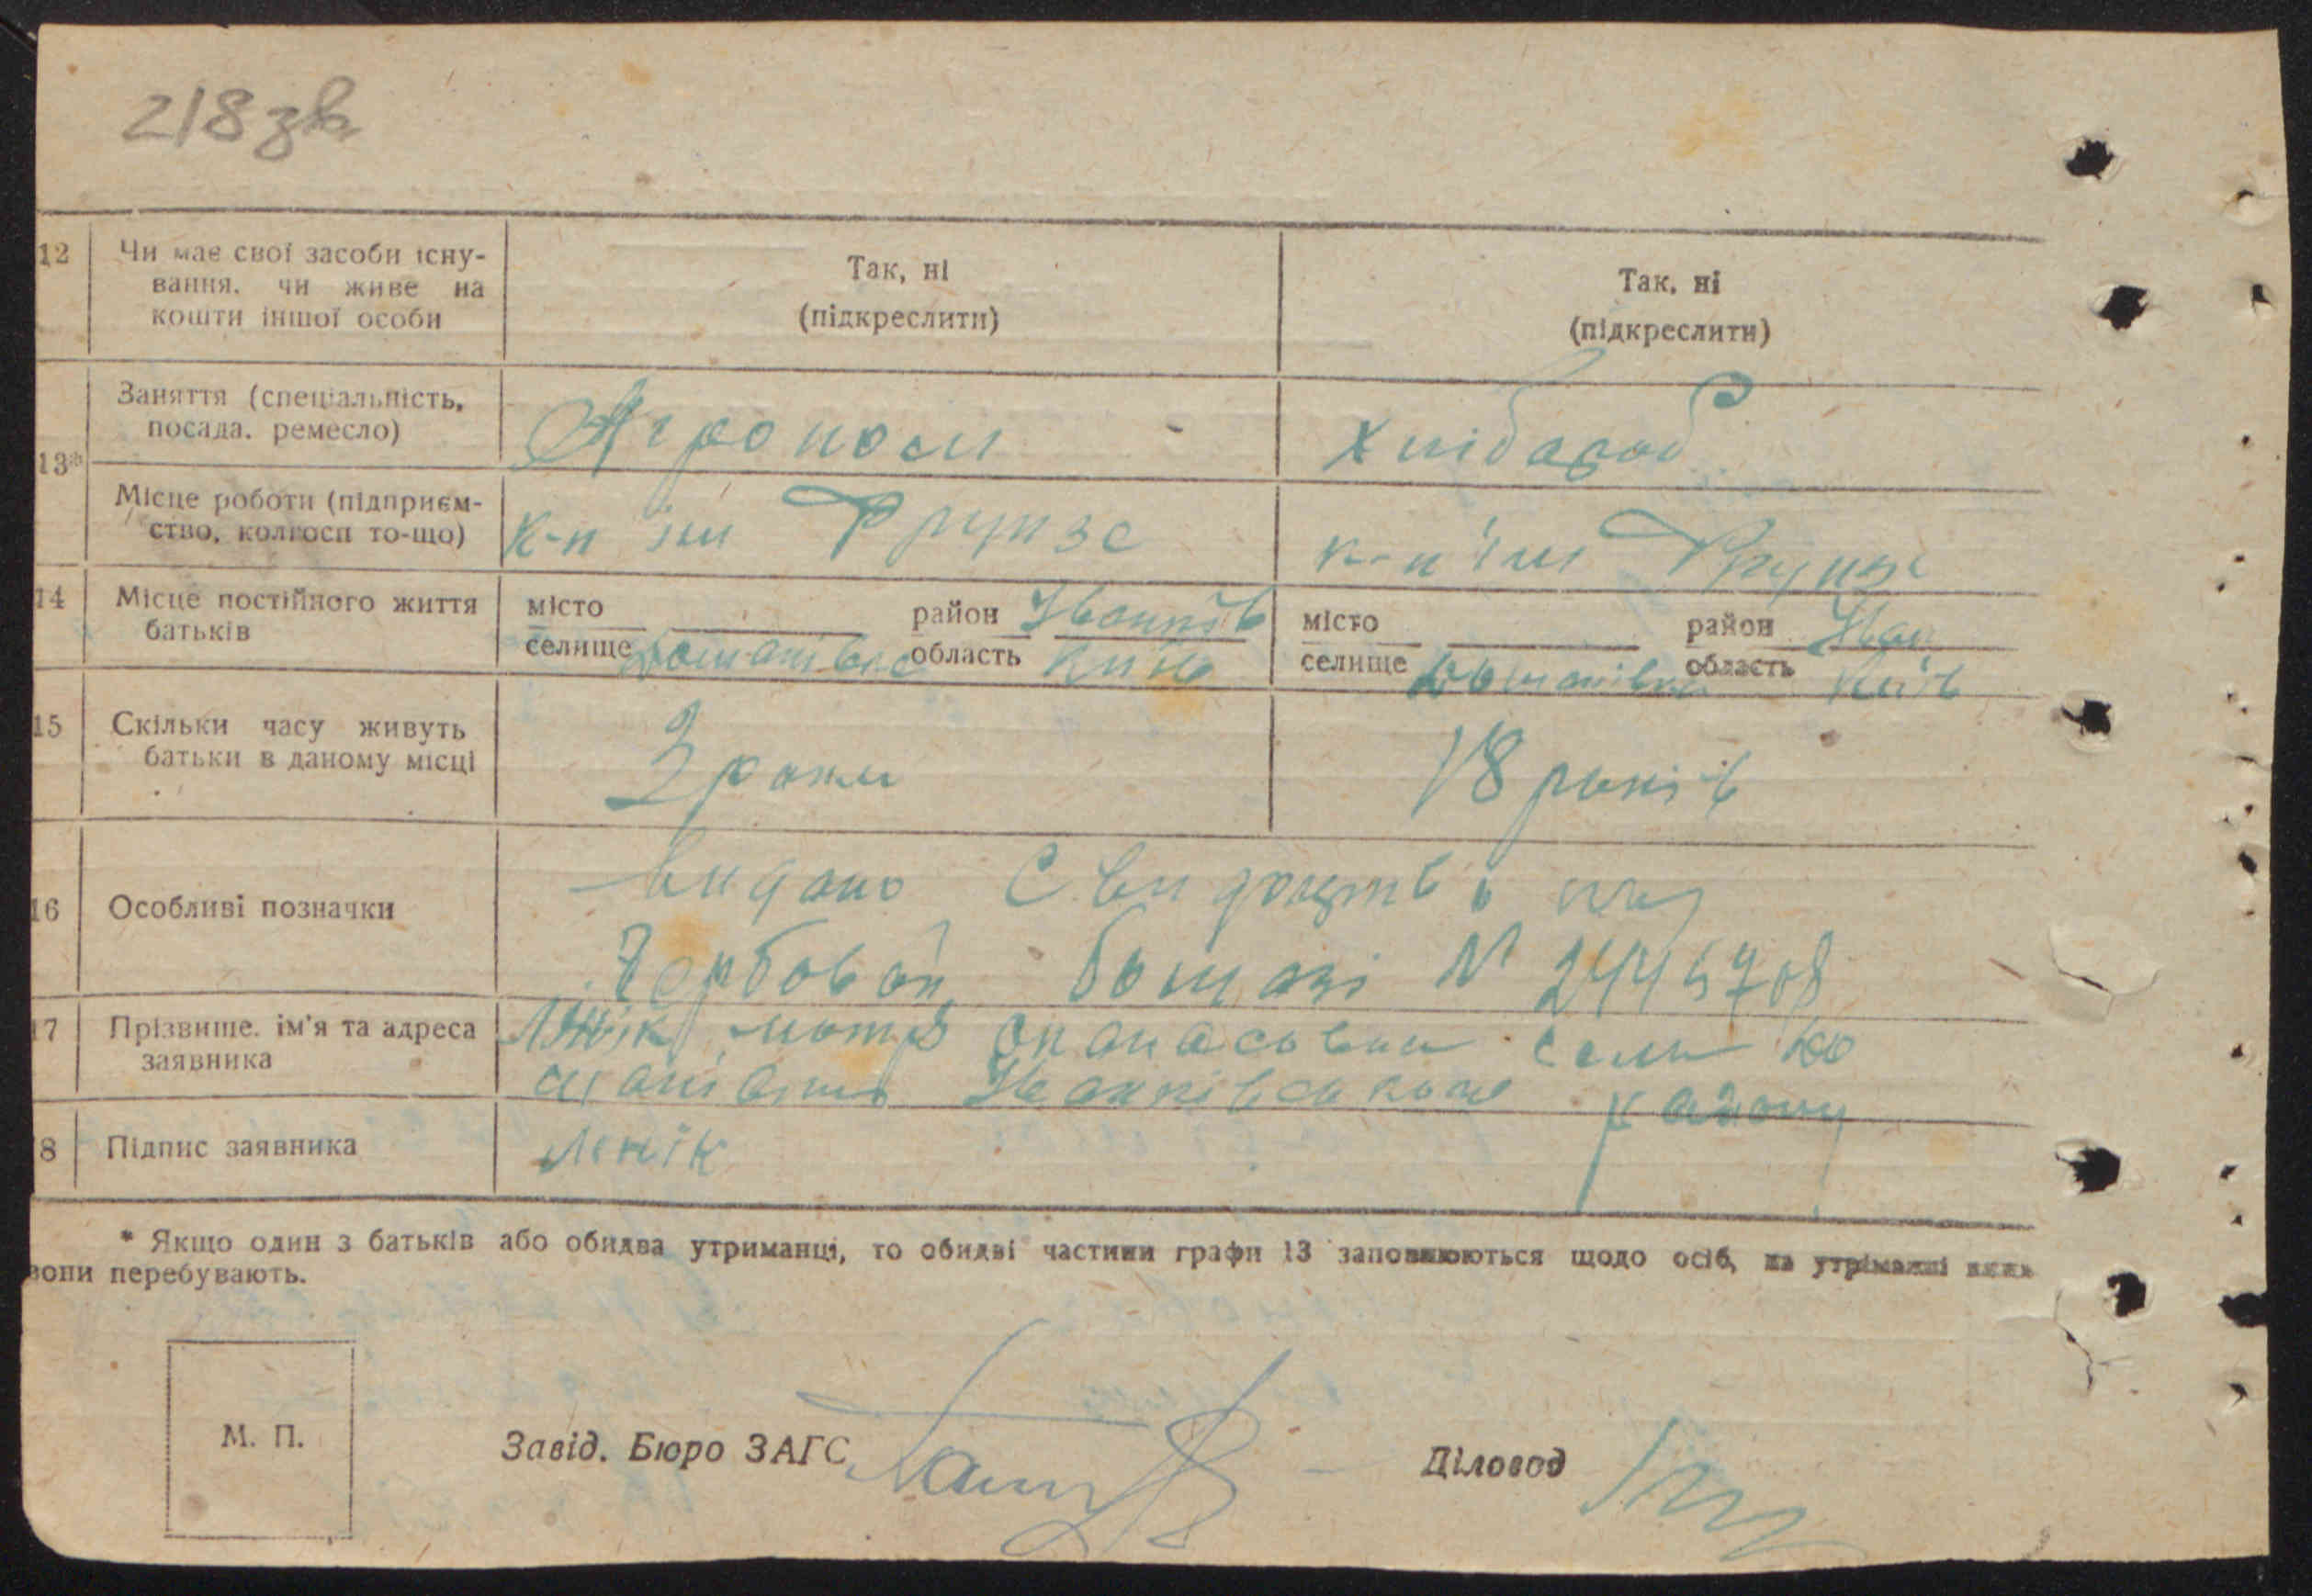 218 зв
12 Чи має свої засоби існу-
вання, чи живе на
кошти іншої особи
Так, ні
(підкреслити)
Так, ні
(підкреслити)
13*
Заняття (спеціальність,
посада, ремесло)
Агроном
Хлібороб
Місце роботи (підприєм-
ство, колгосп то-що)
к-п ім Фрунзе
к-п ім Фрунзе
14 Місце постійного життя
батьків
місто район Іванків
селище область Київ
місто район Іван
селище область Київ
15 Скільки часу живуть
батьки в даному місці
2 роки
18 років
16 Особливі позначки
Видано Свидоцтво на
Гербовій бомазі № 2445708
17 Прізвище, ім'я та адреса
заявника
Лєнік Опанасовна село
Іванківського району
8 Підпис заявника
Лєнік
* Якщо один з батьків або обидва утриманці, то обидві частини графи 13 заповнюються щодо осіб, на утриманні яких
вони перебувають.
М. П.
Завід. Бюро ЗАГС
Діловод